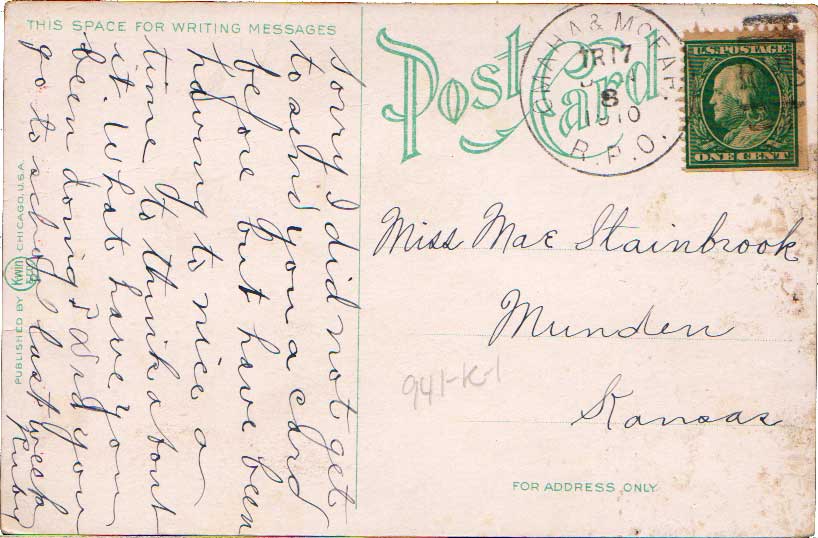 THIS SPACE FOR WRITING MESSAGES
Sorry I did not get
to send you a card
before but have been
having to nice a
time to think about
it. What have you
been doing? Did you
go to school last week
Ruby
PUBLISHED BY
CHICAGO, U.S.A.
Post Card
OMAHA & McFAR
TR 17
8
1910
R.P.O.
U.S. POSTAGE
ONE CENT
Miss Mae Stainbrook
Munden
Kansas
941-K-1
FOR ADDRESS ONLY